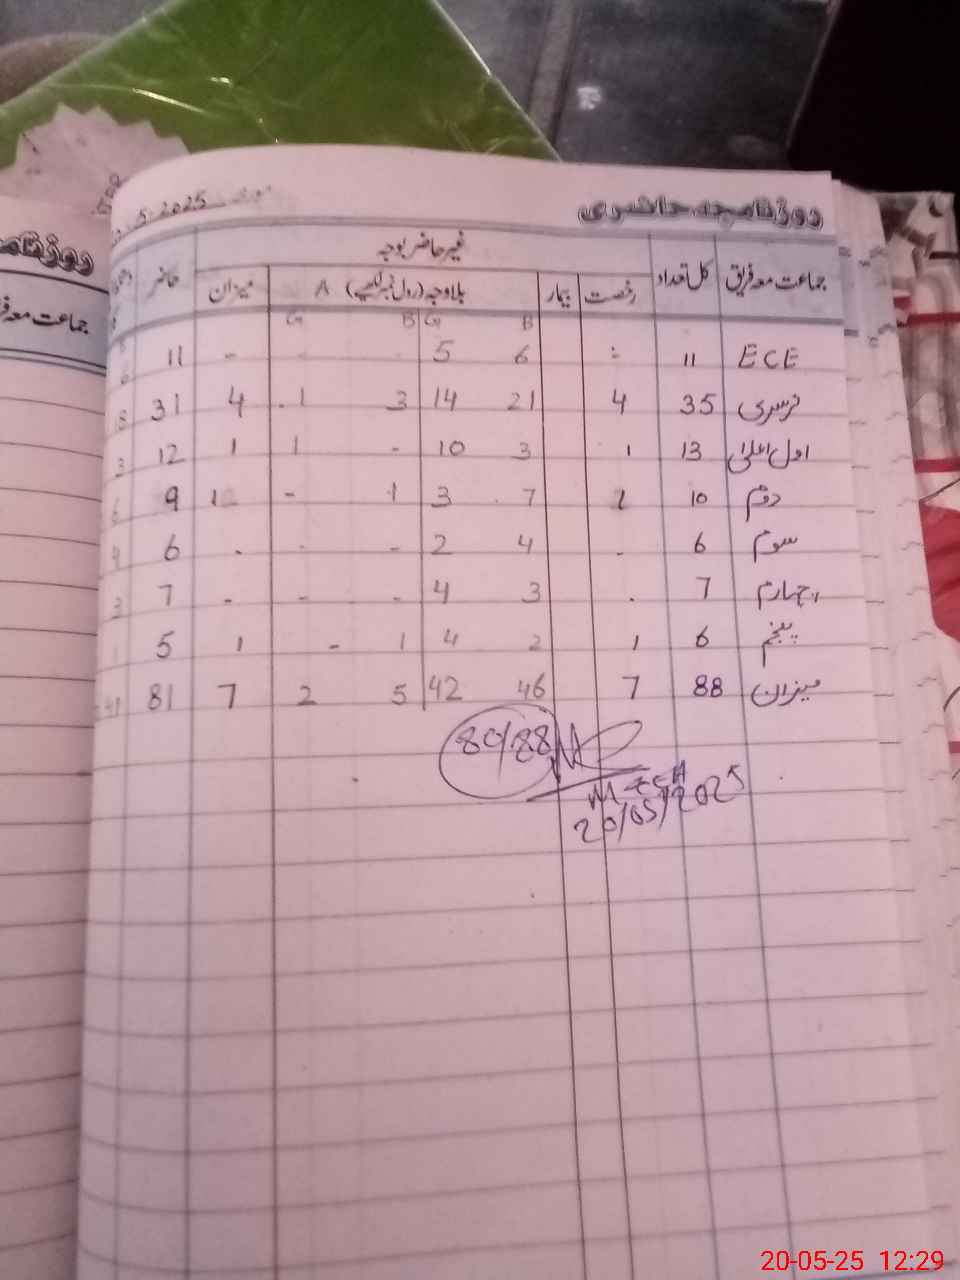 5-2025 مورخہ
روزنامچہ حاضری
جماعت معہ فریق کل تعداد غیر حاضر بوجہ حاضر
رخصت بیمار بلاوجہ (رول نمبر لکھیے) A میزان
B G B G
ECE 11 - 6 5 - 11
نرسری 35 4 21 14 3 1 4 31
اول اعلیٰ 13 1 3 10 - 1 1 12
دوم 10 1 7 3 1 - 1 9
سوم 6 - 4 2 - - - 6
چہارم 7 - 3 4 - - - 7
پنجم 6 1 2 4 1 - 1 5
میزان 88 7 46 42 5 2 7 81
80/88
20/05/2025
روزنامچہ
جماعت معہ فر
20-05-25 12:29